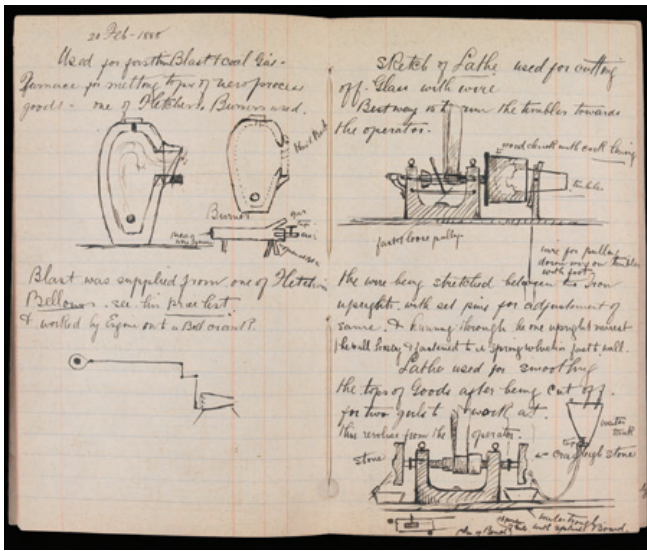 20 Feb - 1888
Used for Blast & Coal Gas -
Furnace for melting tops of new process
goods - one of Fletchers Burners used.
Burner
gas
tap
Blast was supplied from one of Fletchers
Bellows. see his price list
& worked by Engine on a Bell crank?
Sketch of Lathe used for cutting
off. Glass with wire
Best way is to run the tumbler towards
the operator.
wood chuck with cork lining
tumbler
fast & loose pulley
wire for pulling
down wire on tumbler
with foot
the wire being stretched between two Iron
uprights. with set pins for adjustment of
same. & running through the one upright nearest
the wall loosely & fastened to a spring which is fast to wall.
Lathe used for smoothing
the tops of Goods after being cut off.
for two girls to work at.
this revolves from the operator.
water
tank
tap
stone
Craigleigh stone
water trough